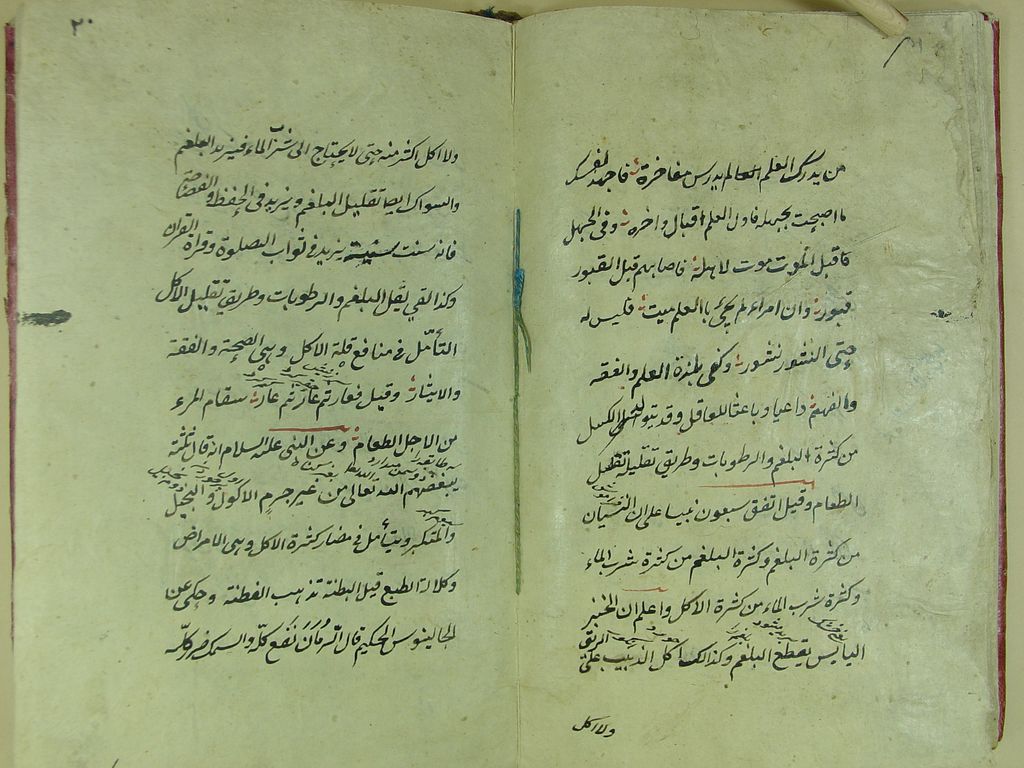 من يدرك العلم العالم يدرس مفاخره فاجهد لنفسك
ما اصبحت بجهله فاول العلم اقبال واخره وفى الجهل
قبل الموت موت لاهله فاجسامهم قبل القبور
قبور وان امراء لم يحيى باالعلم ميت فليس له
حتى النشور نشور وكفى بلذة العلم والفقه
والفهم داعيا وباعثا للعاقل وقد يتولد الكسل
من كثرة البلغم والرطوبات وطريق تقليله تقليل
الطعام وقيل اتفق سبعون نبيا على ان النسيان
من كثرة البلغم وكثرة البلغم من كثرة شرب الماء
وكثرة شرب الماء من كثرة الاكل واعلم ان الخبز
اليابس يقطع البلغم وكذالك اكل الزبيب على الريق
ولا اكل
٢٠
ولا اكل اكثر منه حتى لا يحتاج الى شرب الماء فيزيد البلغم
والسواك ايضا تقليل البلغم ويزيد فى الحفظ والفصاحة
فانه سنت سنية يزيد فى ثواب الصلوة وقراة القران
وكذا القى يقل البلغم والرطوبات وطريق تقليل الاكل
التأمل فى منافع قلة الاكل وهى الصحة والفقة
والايثار وقيل فعار ثم عار ثم عار سقام المرء
من الاجل الطعام وعن النبى عليه السلام انه قال ثلثة
يبغضهم الله تعالى من غير جرم الاكول والبخيل
والمتكبر ويتأمل فى مضار كثرة الاكل وهى الامراض
وكلالة الطبع قيل البطنة تذهب الفطنة وحكى عن
الجالينوس الحكيم قال الرمان نفع كله والسمك ضر كله